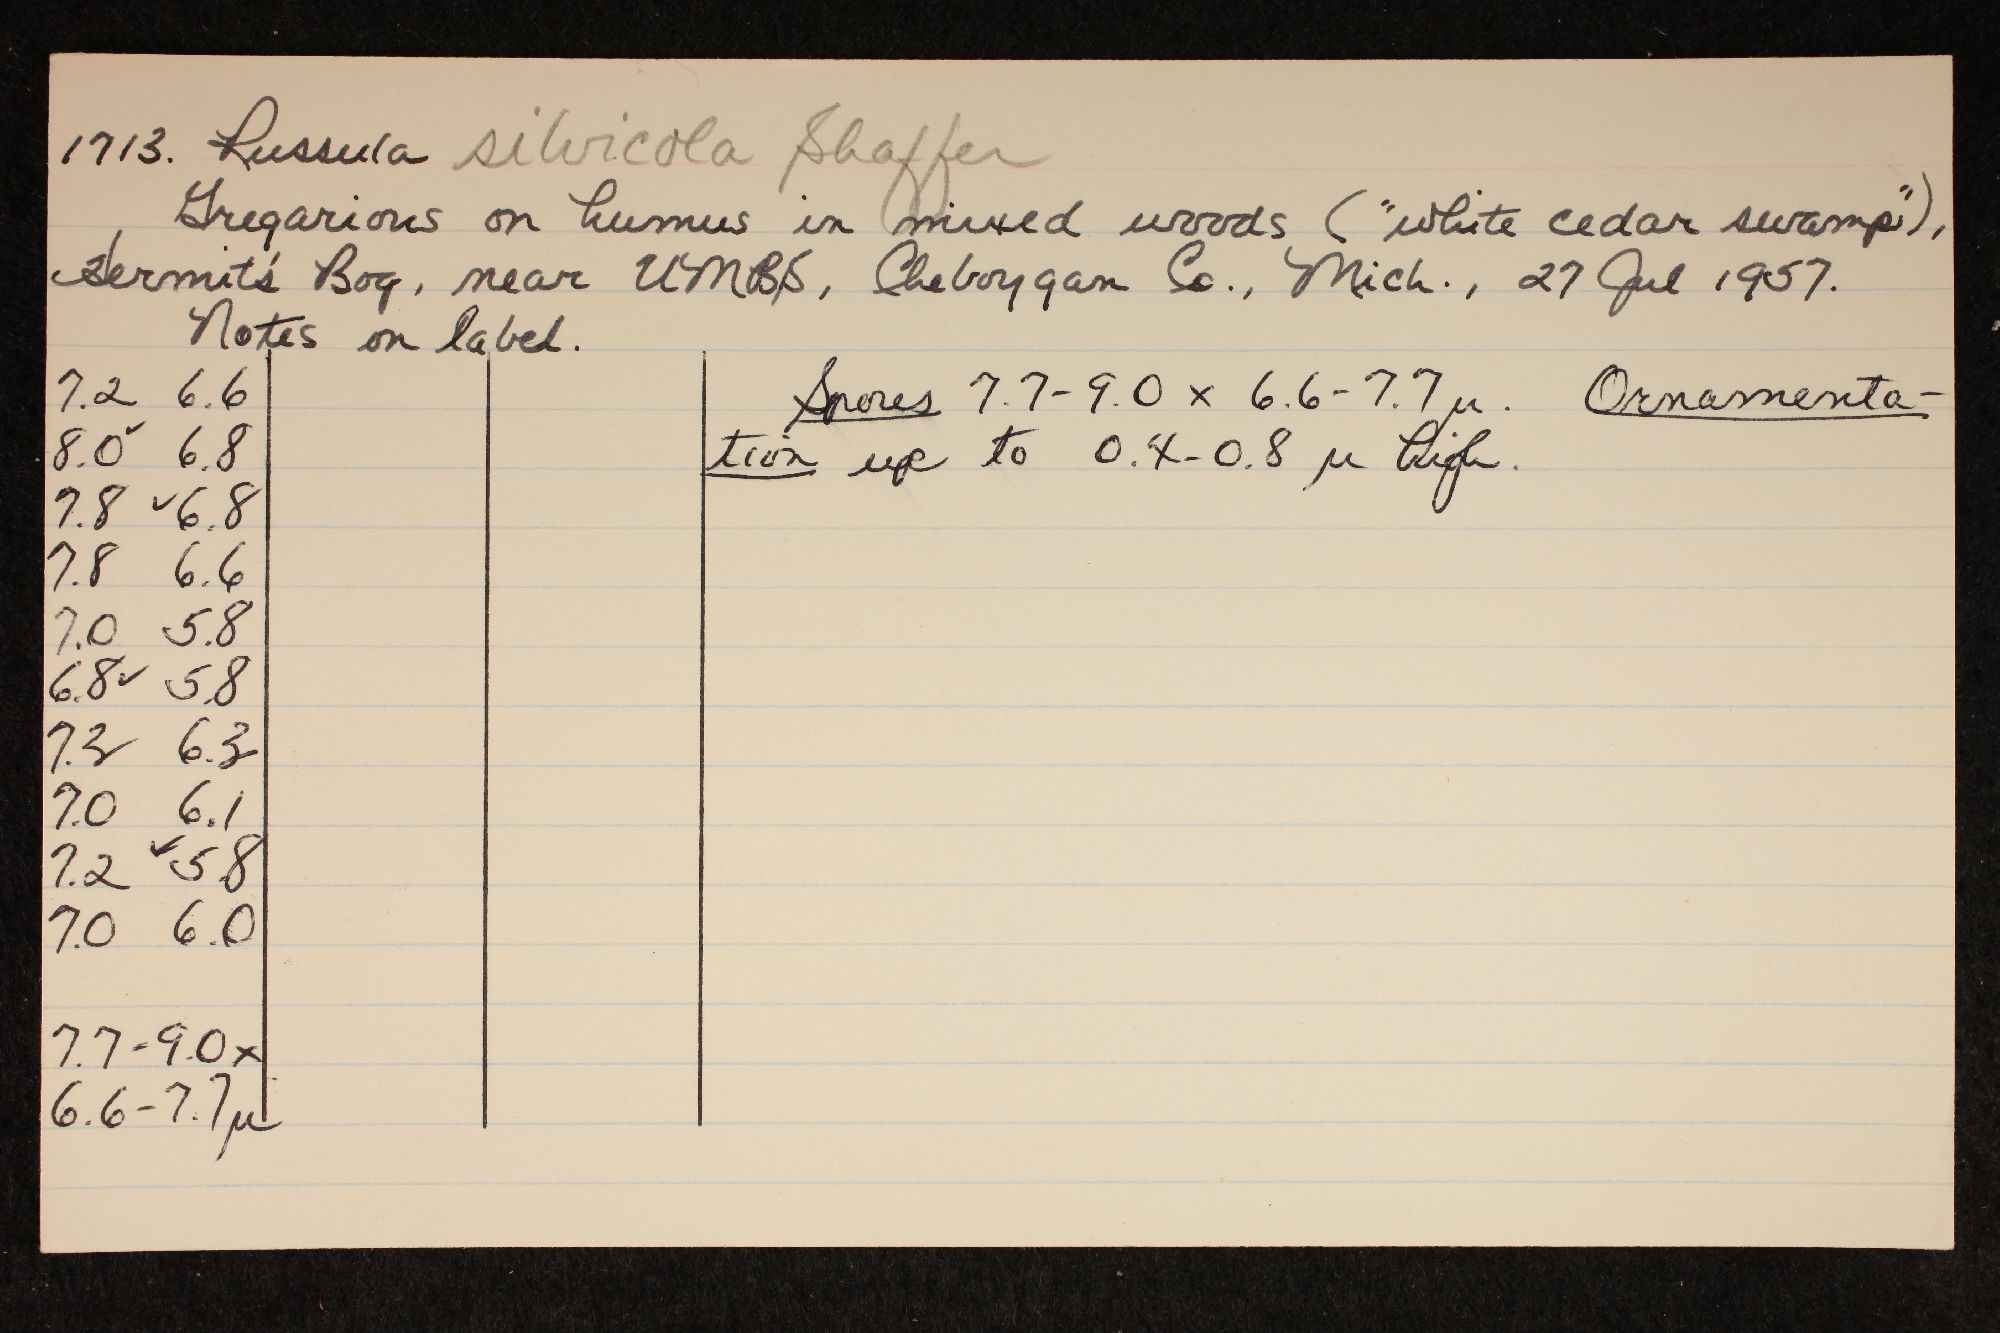 1713. Russula silvicola Shaffer
Gregarious on humus in mixed woods ("white cedar swamp"),
Hermit's Bog, near UMBS, Cheboygan Co., Mich., 27 Jul 1957.
Notes on label.
7.2 6.6
8.0✓ 6.8
7.8 ✓6.8
7.8 6.6
7.0 5.8
6.8✓ 5.8
7.3 6.3
7.0 6.1
7.2 ✓5.8
7.0 6.0
7.7-9.0 x
6.6-7.7 µ
Spores 7.7-9.0 x 6.6-7.7 µ. Ornamenta-
tion up to 0.4-0.8 µ high.